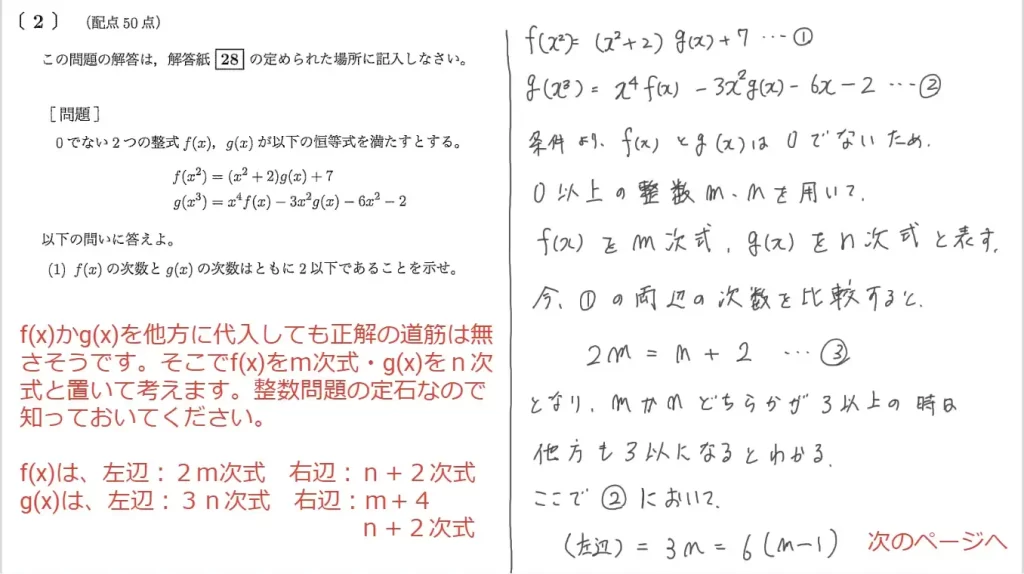 〔 2 〕 (配点 50 点)
この問題の解答は，解答紙 28 の定められた場所に記入しなさい。
［問題］
0 でない 2 つの整式 f(x)，g(x) が以下の恒等式を満たすとする。
f(x²) = (x² + 2)g(x) + 7
g(x³) = x⁴f(x) − 3x²g(x) − 6x² − 2
以下の問いに答えよ。
(1) f(x) の次数と g(x) の次数はともに 2 以下であることを示せ。
f(x)かg(x)を他方に代入しても正解の道筋は無
さそうです。そこでf(x)をm次式・g(x)をｎ次
式と置いて考えます。整数問題の定石なので
知っておいてください。
f(x)は、左辺：２m次式　右辺：ｎ＋２次式
g(x)は、左辺：３ｎ次式　右辺：m＋４
ｎ＋２次式
f(x²) = (x²+2) g(x) + 7 … ①
g(x³) = x⁴ f(x) − 3x²g(x) − 6x − 2 … ②
条件より、f(x) と g(x) は 0 でないため、
0 以上の整数 m、n を用いて、
f(x) を m 次式、g(x) を n 次式 と表す。
今、① の両辺の次数を比較すると、
2m = n + 2 … ③
となり、m か n どちらかが 3 以上の時は
他方も 3 以になるとわかる。
ここで ② において、
(左辺) = 3n = 6 (m−1)
次のページへ